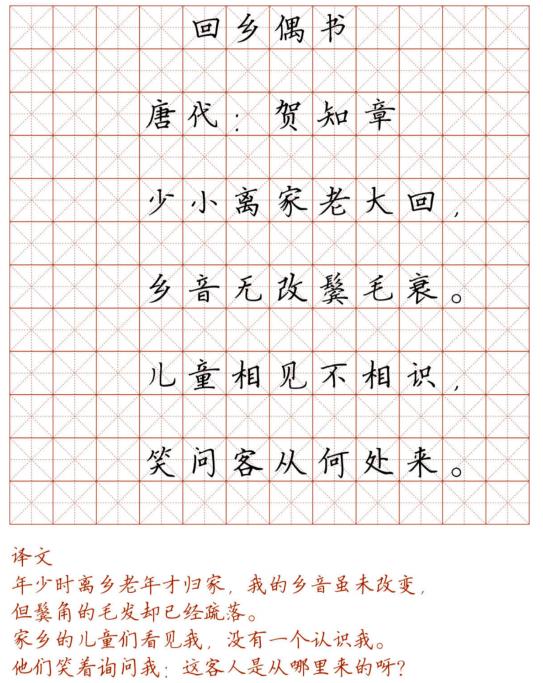 回乡偶书
唐代：贺知章
少小离家老大回，
乡音无改鬓毛衰。
儿童相见不相识，
笑问客从何处来。
译文
年少时离乡老年才归家，我的乡音虽未改变，
但鬓角的毛发却已经疏落。
家乡的儿童们看见我，没有一个认识我。
他们笑着询问我：这客人是从哪里来的呀？